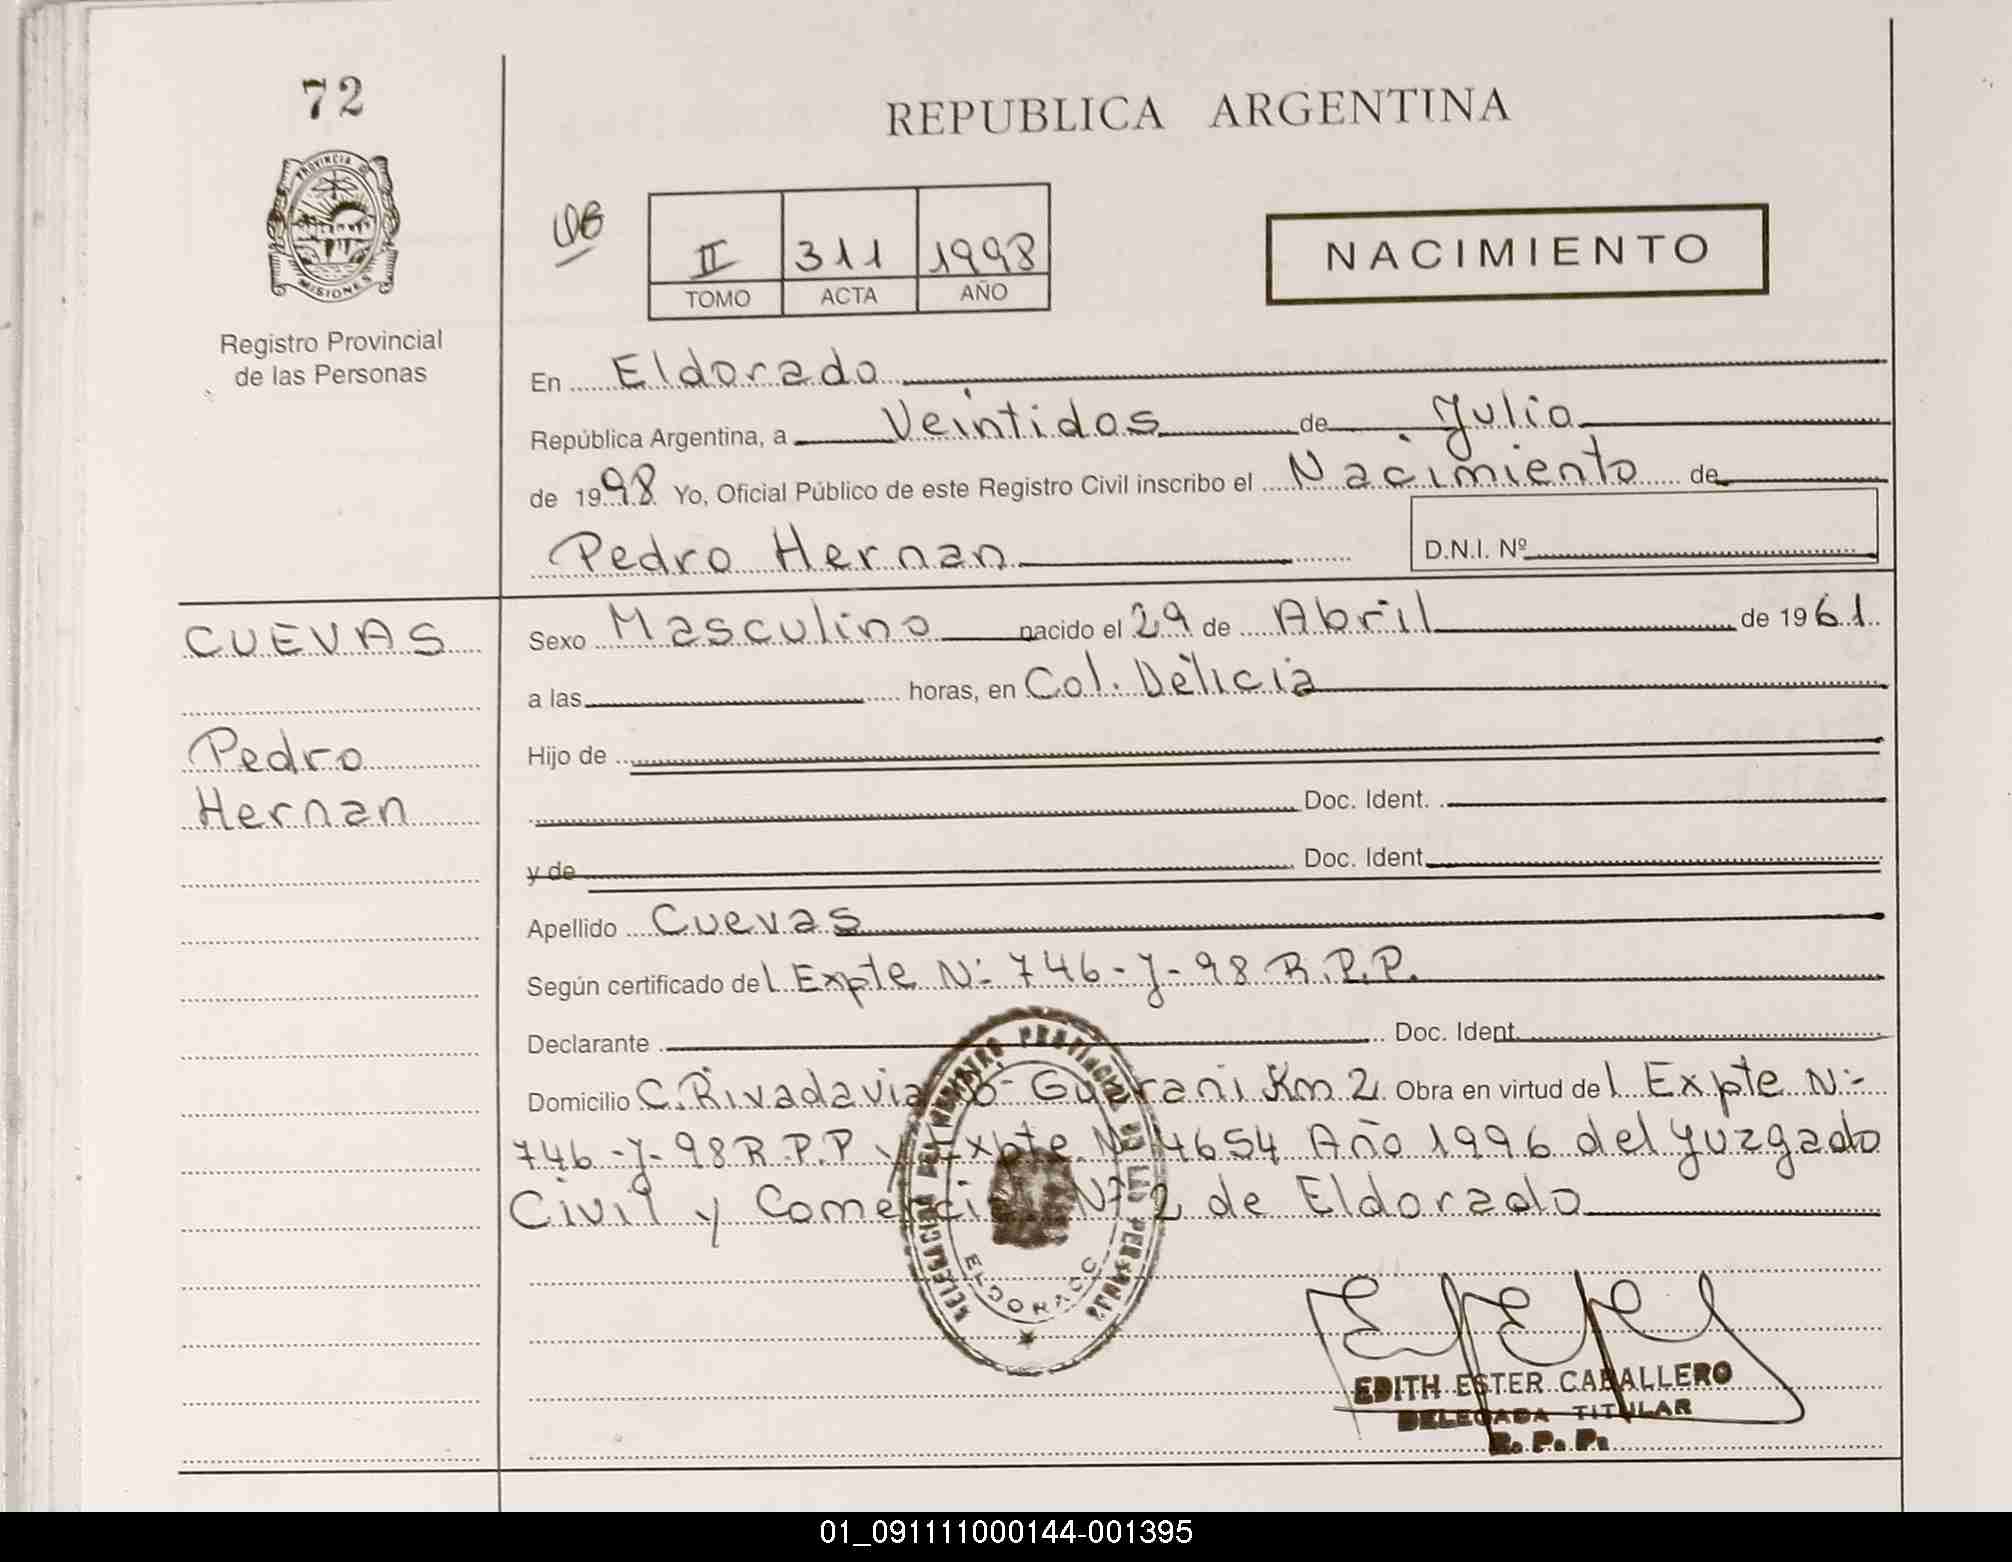 72
REPUBLICA ARGENTINA
PROVINCIA DE
MISIONES
Registro Provincial
de las Personas
II 311 1998
TOMO ACTA AÑO
NACIMIENTO
En Eldorado
República Argentina, a Veintidos de Julio
de 1998 Yo, Oficial Público de este Registro Civil inscribo el Nacimiento de
Pedro Hernan D.N.I. Nº
CUEVAS
Pedro
Hernan
Sexo Masculino nacido el 29 de Abril de 1961
a las horas, en Col. Delicia
Hijo de
Doc. Ident.
y de Doc. Ident.
Apellido Cuevas
Según certificado del Expte N: 746-J-98 R.P.P.
Declarante Doc. Ident.
Domicilio C. Rivadavia Guarani Km 2 Obra en virtud del Expte N:-
746-J-98 R.P.P y Expte. Nº 4654 Año 1996 del Juzgado
Civil y Comercial Nº 2 de Eldorado
DELEGACION DEL REGISTRO PROVINCIAL DE LAS PERSONAS
ELDORADO
EDITH ESTER CABALLERO
DELEGADA TITULAR
R. P. P.
01_091111000144-001395